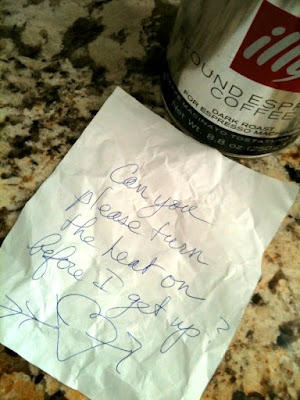 illy
OUND ESP
COFFEE
DARK ROAST
FOR ESPRESSO MA
TOSTAT
Net Wt. 8.8 oz
Can you
please turn
the heat on
before I get up?